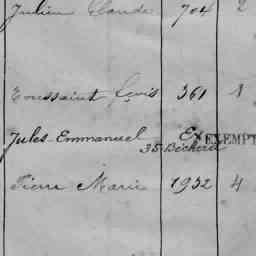 Julien Claude 704 2
Toussaint Çevis 361 1
Jules-Emmanuel Ex EXEMPT
35
Pierre Marie 1932 4